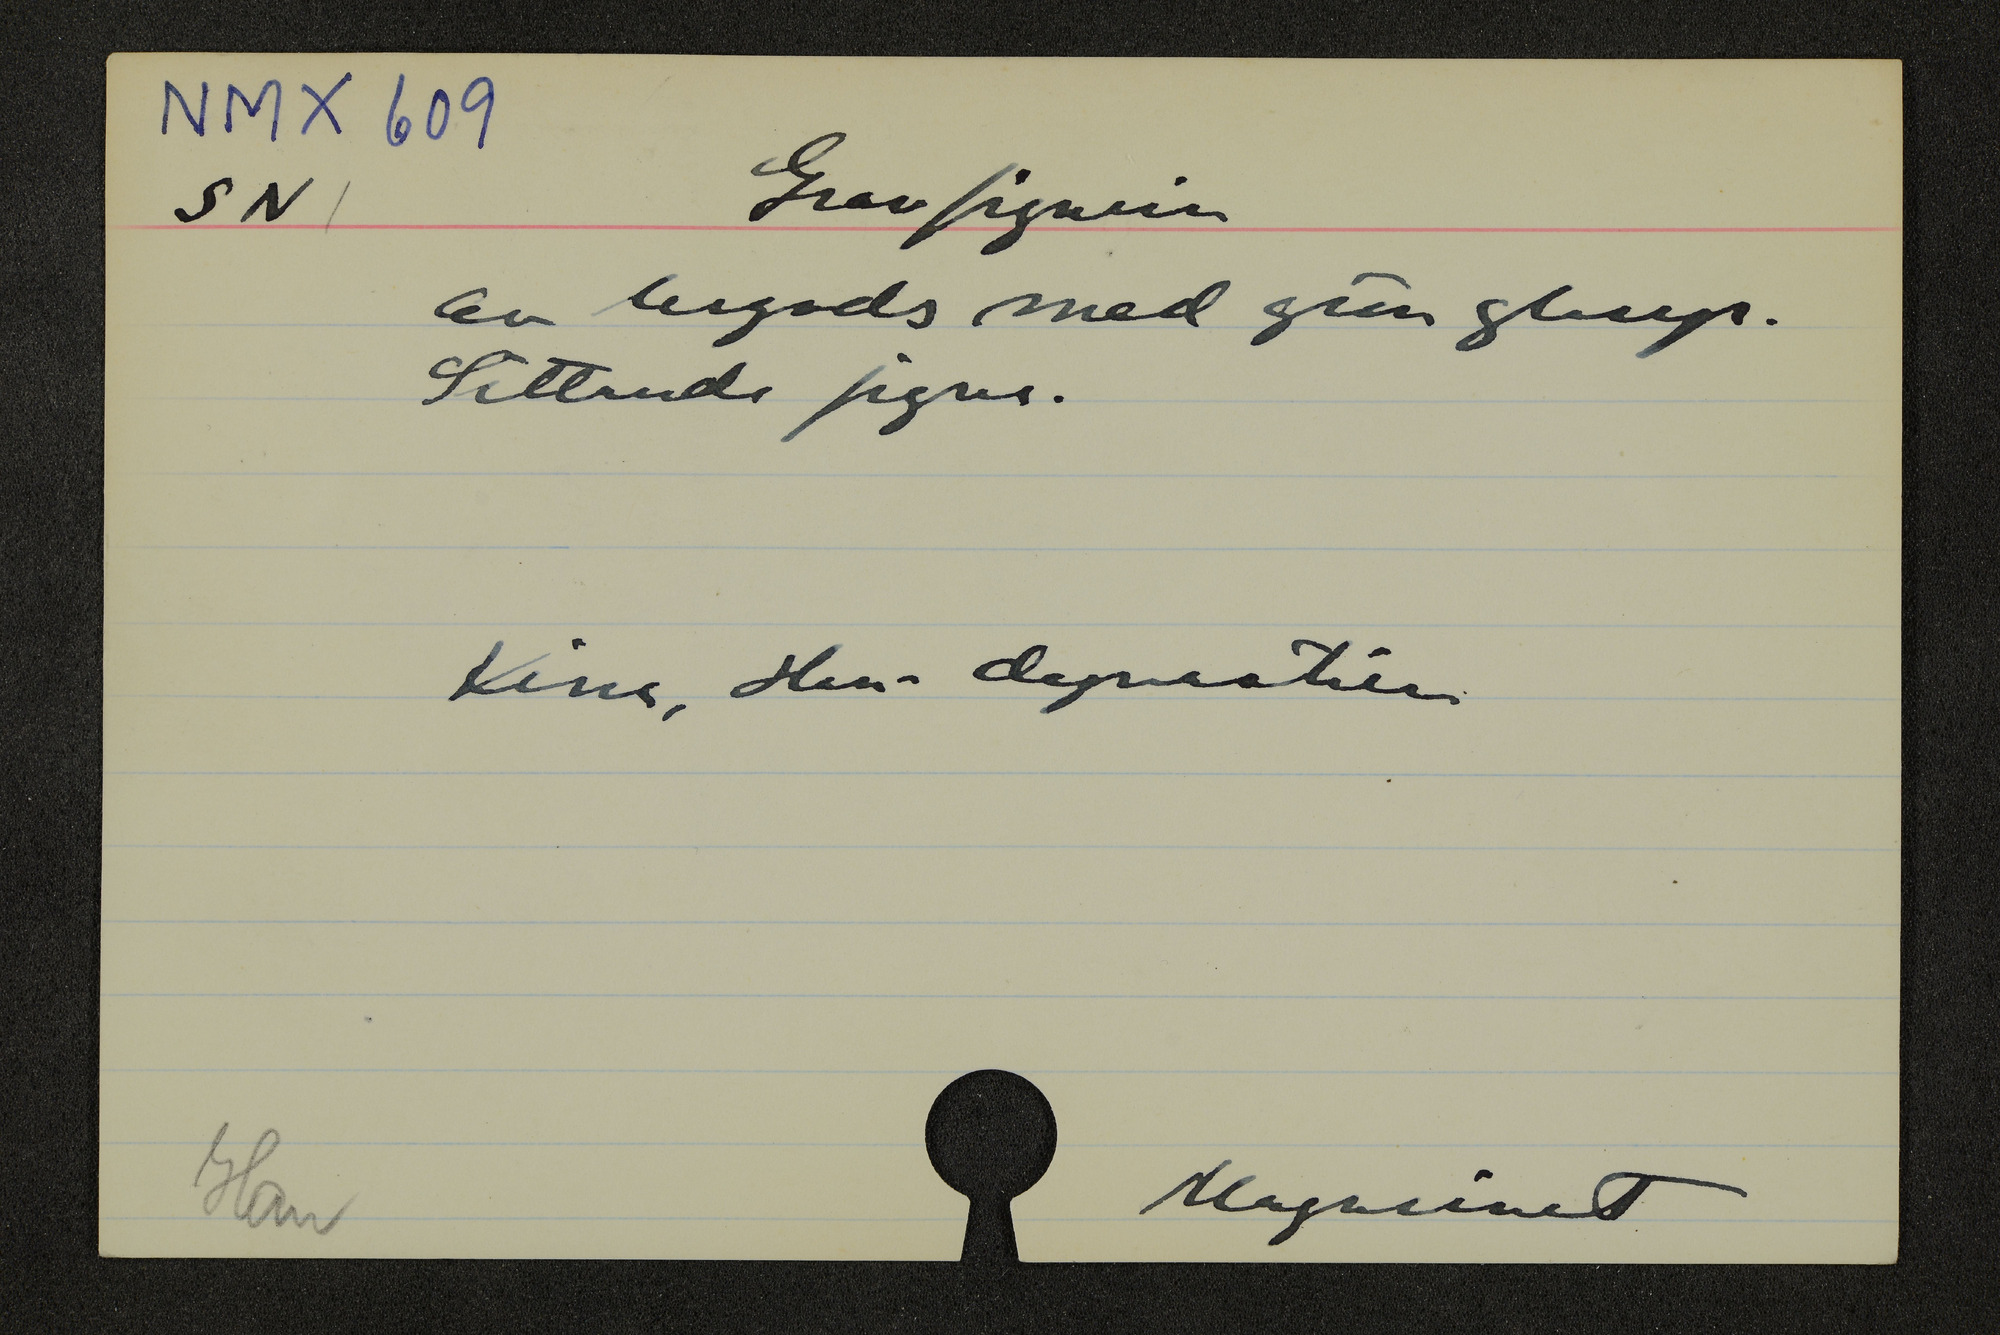 NMX 609
SN/
Gravfigurin
av lergods med grön glasyr.
Sittande figur.
Kina, Han-dynastien
Han
Magasinet